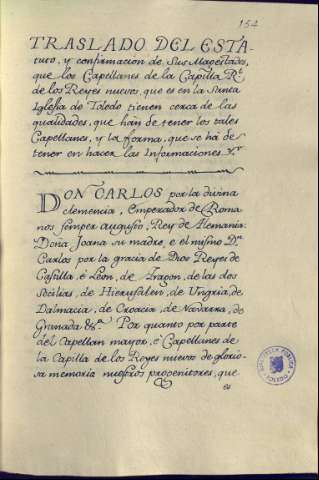 154
TRASLADO DEL ESTA-
tuto, y confirmacion de Sus Magestades,
que los Capellanes de la Capilla Rl.
de los Reyes nuevos, que es en la Santa
Iglesia de Toledo tienen cerca de las
qualidades, que hán de tener los tales
Capellanes, y la forma, que se há de
tener en hacer las Informaciones
DON CARLOS por la divina
clemencia, Emperador de Roma
nos semper augusto, Rey de Alemania:
Doña Joana su madre, e el mismo Dn.
Carlos por la gracia de Dios Reyes de
Castilla, é Leon, de Aragon, de las dos
Sicilias, de Hierusalen, de Ungria, de
Dalmacia, de Croacia, de Navarra, de
Granada &a. Por quanto por parte
del Capellan mayor, é Capellanes de
la Capilla de los Reyes nuevos de glorio-
sa memoria nuestros progenitores, que
es
BIBLIOTECA PUBLICA
TOLEDO